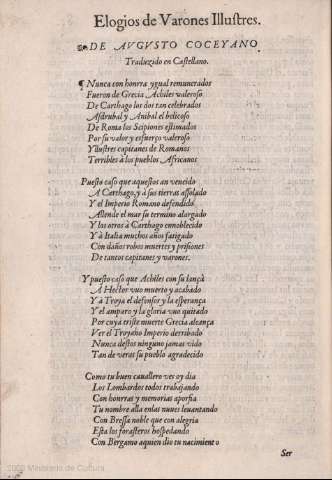 Elogios de Varones Illustres.
DE AVGVSTO COCEYANO
Traduzido en Castellano.
¶ Nunca con honrra ygual remunerados
Fueron de Grecia Achiles valeroso
De Carthago los dos tan celebrados
Asdrubal y Anibal el belicoso
De Roma los Scipiones estimados
Por su valor y esfuerço valeroso
Yllustres capitanes de Romanos
Terribles à los pueblos Africanos
Puesto caso que aquestos an vencido
A Carthago, y à sus tierras assolado
Y el Imperio Romano defendido
Allende el mar su termino alargado
Y los otros à Carthago ennoblecido
Y à Italia muchos años fatigado
Con daños robos muertes y prisiones
De tantos capitanes y varones.
Y puesto caso que Achiles con su lança
A Hector vuo muerto y acabado
Y à Troya el defensor y la esperança
Y el amparo y la gloria vuo quitado
Por cuya triste muerte Grecia alcança
Ver el Troyano Imperio derribado
Nunca destos ninguno jamas vido
Tan de veras su pueblo agradecido
Como tu buen cauallero ves oy dia
Los Lombardos todos trabajando
Con honrras y memorias aporfia
Tu nombre alla enlas nuues leuantando
Con Bressa noble que con alegria
Esta los forasteros hospedando
Con Bergamo aquien dio tu nacimiento
Ser
2009 Ministerio de Cultura